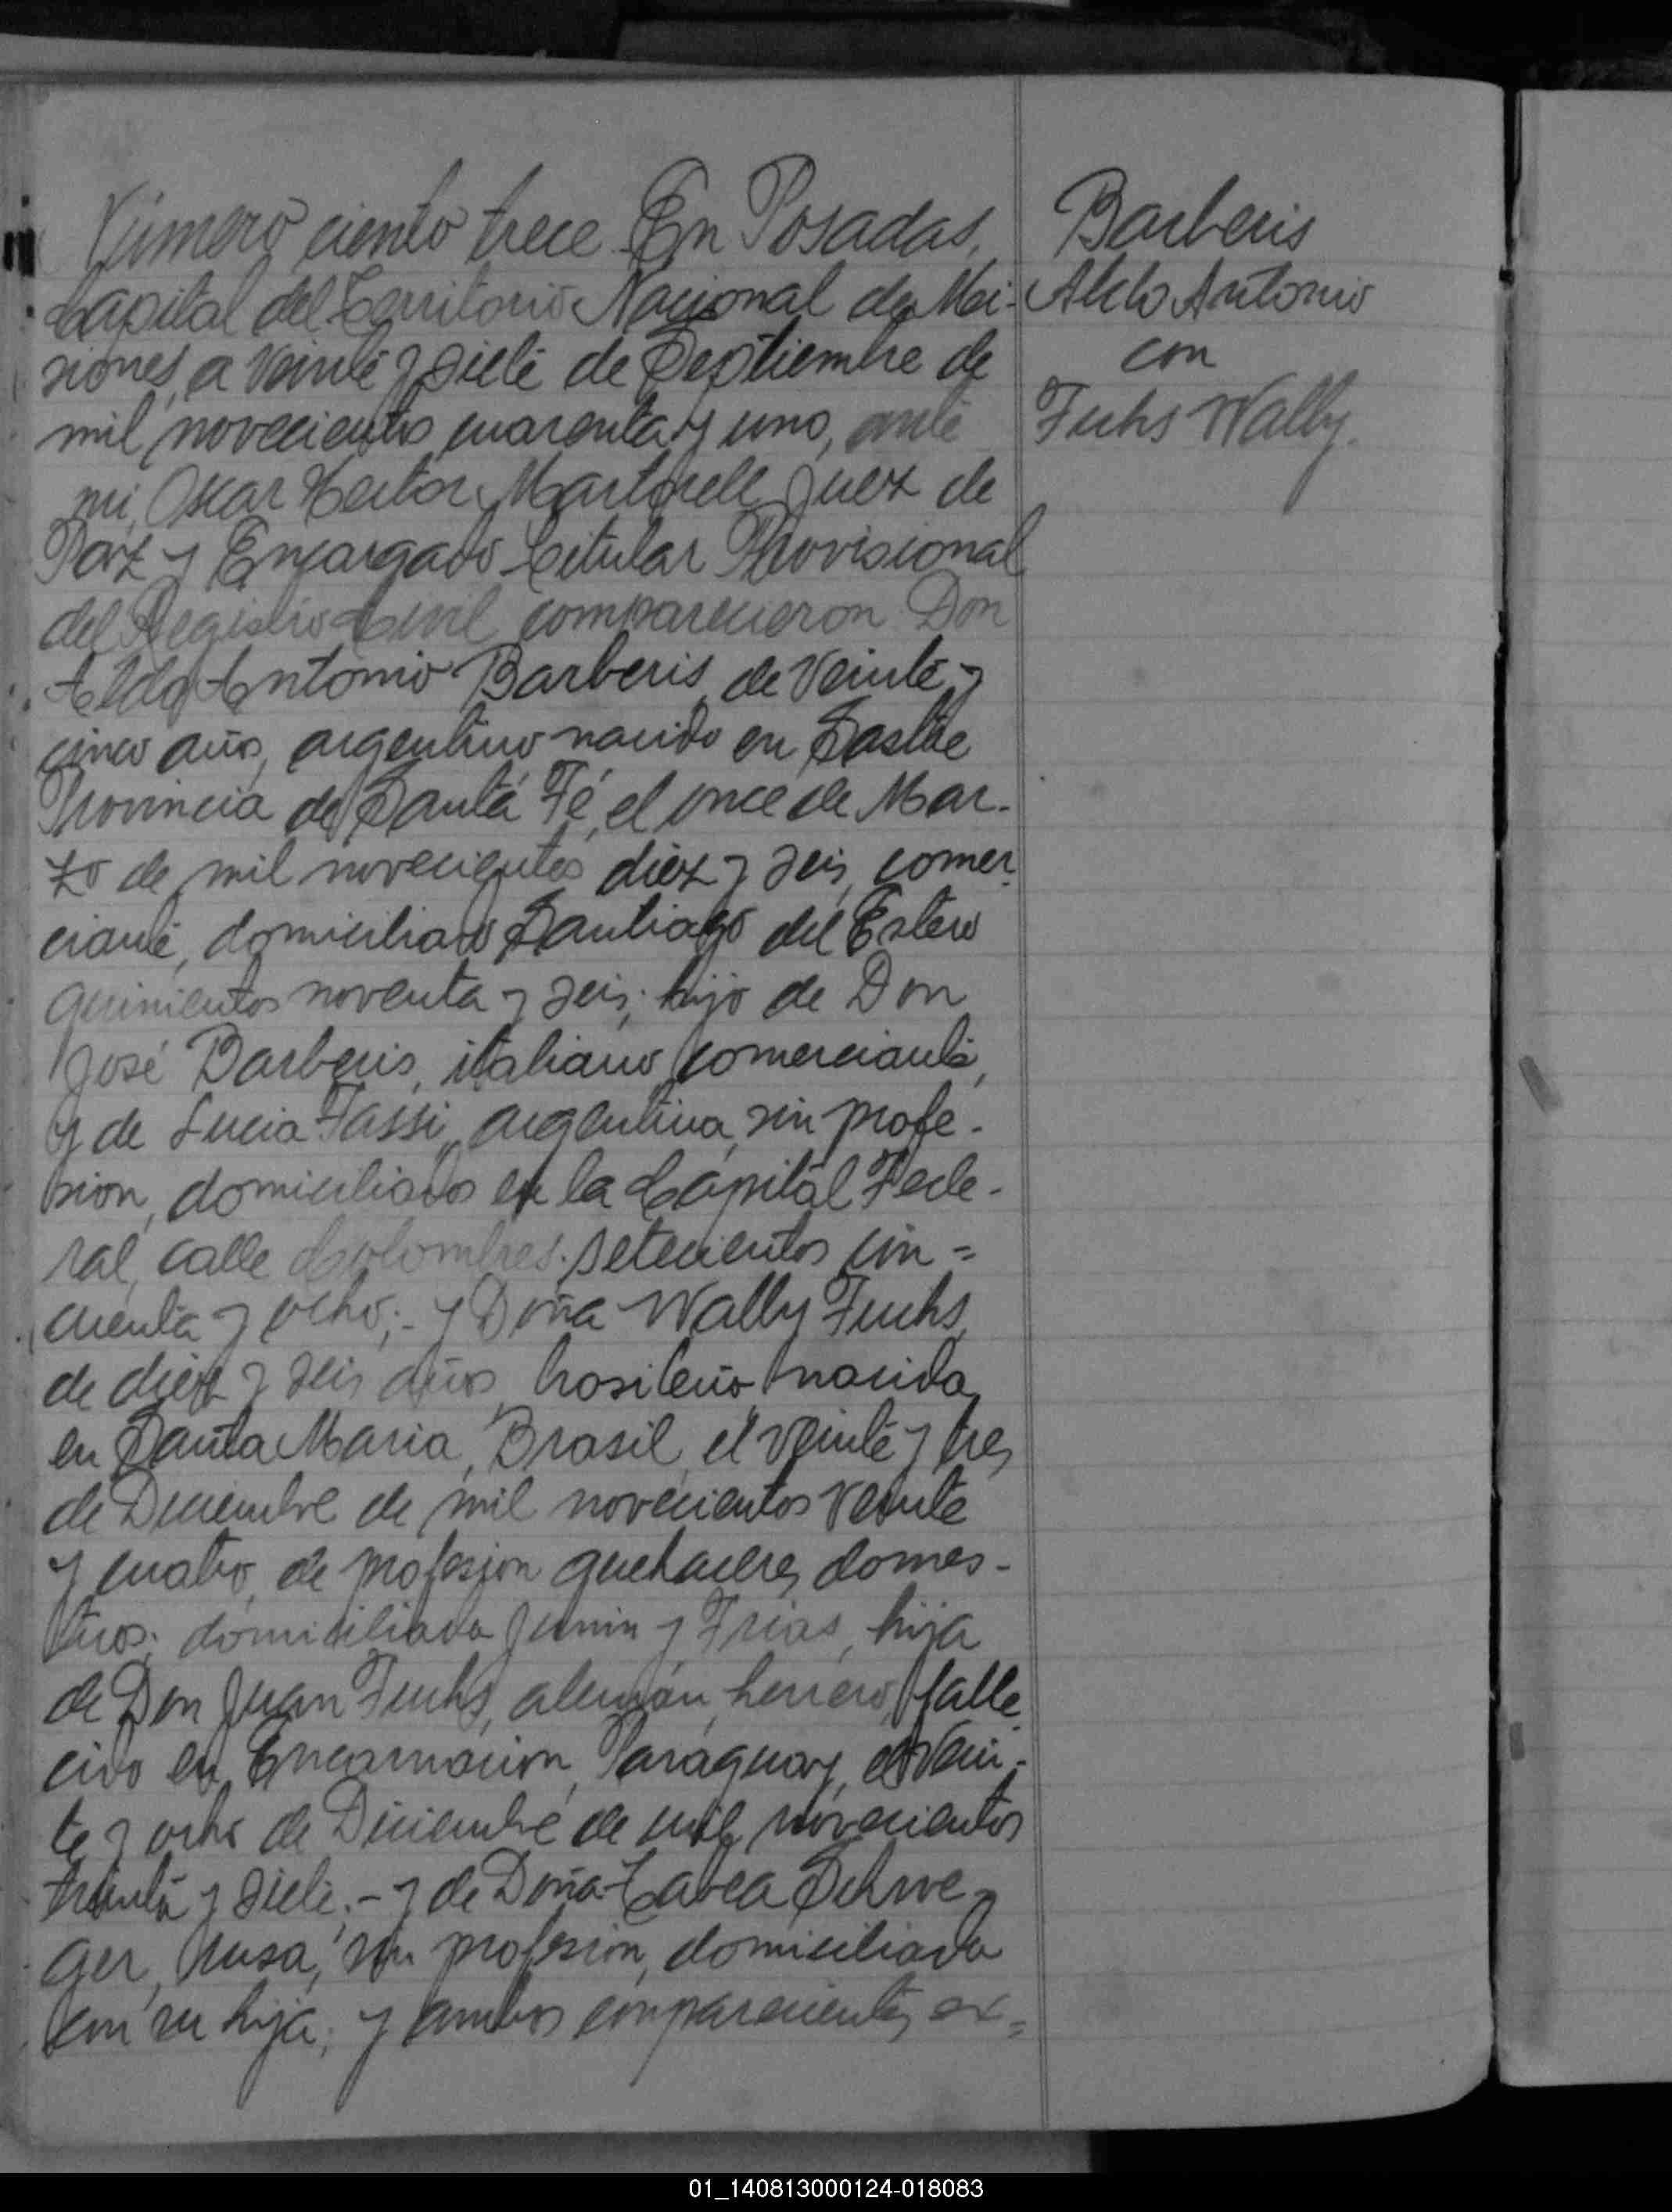 Número ciento trece En Posadas,
Capital del Territorio Nacional de Mi-
siones, a veinte y siete de Septiembre de
mil novecientos cuarenta y uno, ante
mi, Oscar Hector Martorell Juez de
Paz y Encargado Titular Provisional
del Registro Civil comparecieron Don
Aldo Antonio Barberis, de veinte y
cinco años, argentino nacido en Sastre
Provincia de Santa Fé, el once de Mar-
zo de mil novecientos diez y seis, comer-
ciante, domiciliado Santiago del Estero
quinientos noventa y seis; hijo de Don
José Barberis, italiano, comerciante,
y de Lucia Tassi, argentina, sin profe-
sion, domiciliados en la Capital Fede-
ral, calle Colombres setecientos cin=
cuenta y ocho;- y Doña Wally Fuchs,
de diez y seis años, brasileña, nacida
en Santa Maria, Brasil, el veinte y tres
de Diciembre de mil novecientos veinte
y cuatro, de profesion quehaceres domes-
ticos; domiciliada Junin y Frias, hija
de Don Juan Fuchs, alemán, herrero, falle
cido en Encarnacion, Paraguay, el vein-
te y ocho de Diciembre de mil novecientos
treinta y siete;- y de Doña
ger, rusa, sin profesion, domiciliada
con su hija; y ambos comparecientes ex=
Barberis
Aldo Antonio
con
Fuchs Wally.
01_140813000124-018083